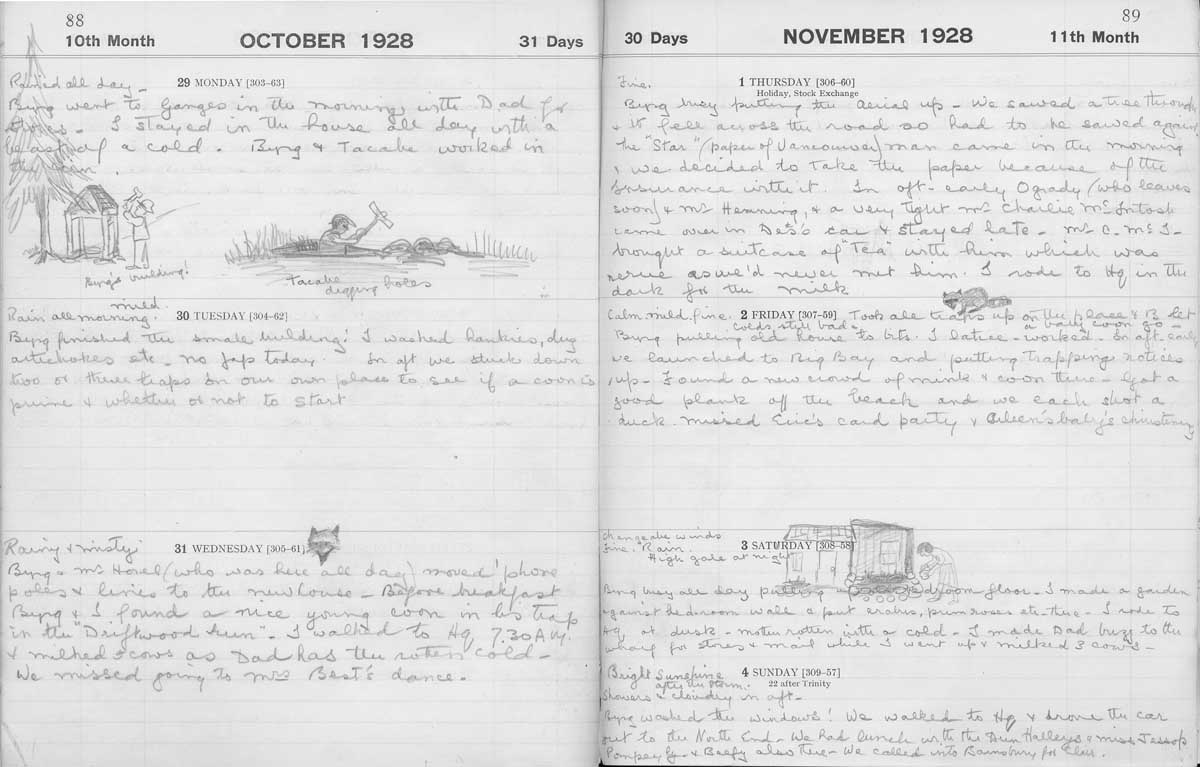 88
10th Month OCTOBER 1928 31 Days
29 MONDAY [303–63]
Rained all day –
Byng went to Ganges in the morning with Dad for
stores – I stayed in the house all day with a
beast of a cold. Byng & Tacabe worked in
the
Byng's building!
Tacabe
digging holes
mild
Rain all morning. 30 TUESDAY [304–62]
Byng finished the small building! I washed hankies, dug
artichokes etc – no Jap today. In aft we stuck down
two or three traps on our own place to see if a coon is
prime & whether or not to start
Rainy & misty 31 WEDNESDAY [305–61]
Byng & Mr Howel (who was here all day) moved 'phone
poles & lines to the new house – Before breakfast
Byng & I found a nice young coon in his trap
in the "Driftwood – I walked to Hq 7.30 A.M.
& milked 3 cows as Dad has the rotten cold –
We missed going to Mrs Best's dance.
89
30 Days NOVEMBER 1928 11th Month
Fine. 1 THURSDAY [306–60]
Holiday, Stock Exchange
Byng busy putting the aerial up – We sawed a tree through
& it fell across the road so had to be sawed again
The "Star" (paper of Vancouver) man came in the morning
& we decided to take the paper because of the
insurance with it. In aft – early Ogrady (who leaves
soon) & Mr Hemming, & a very tight Mr Charlie McIntosh
came over in Des's car & stayed late – Mr C. McI –
brought a suitcase of "Tea" with him which was
nerve as we'd never met him. I rode to Hq in the
dark for the milk
Calm mild fine. 2 FRIDAY [307–59] Took all traps up on the place & B let
colds still bad – a baby coon go –
Byng pulling old house to bits. I – worked. In aft early
we launched to Big Bay and putting trapping notices
up – Found a new crowd of mink & coon there – Got a
good plank off the beach and we each shot a
duck. Missed Eric's card party & Eileen's baby's christening
Changeable winds
Fine. Rain. 3 SATURDAY [308–58]
High gale at night
Byng busy all day putting bedroom floor – I made a garden
against bedroom wall & put arabis, primroses etc there – I rode to
Hq at dusk – Mother rotten with a cold – I made Dad buzz to the
wharf for stores & mail while I went up & milked 3 cows –
Bright Sunshine 4 SUNDAY [309–57]
after the storm. 22 after Trinity
Showers & cloudy in aft –
Byng washed the windows! We walked to Hq & drove the car
out to the North End – We had lunch with the & Miss Jessop
Pompey & Beefy also there – We called into Bainsbury for